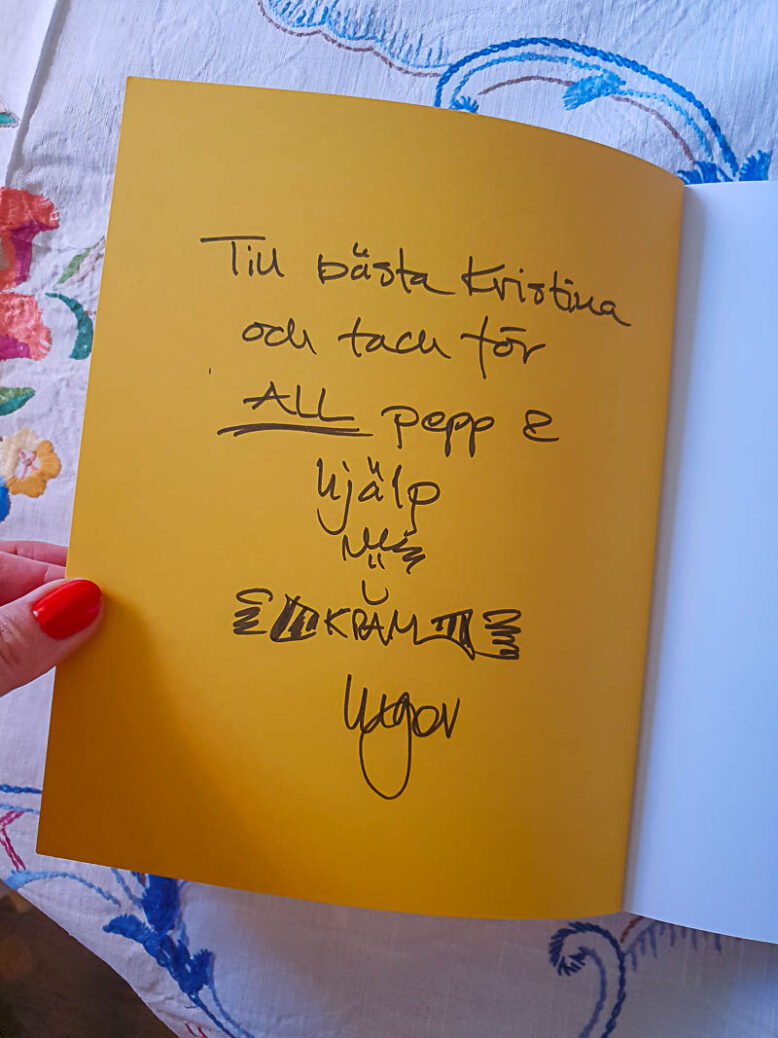 Till bästa Kristina
och tack för
ALL pepp &
hjälp
KRAM